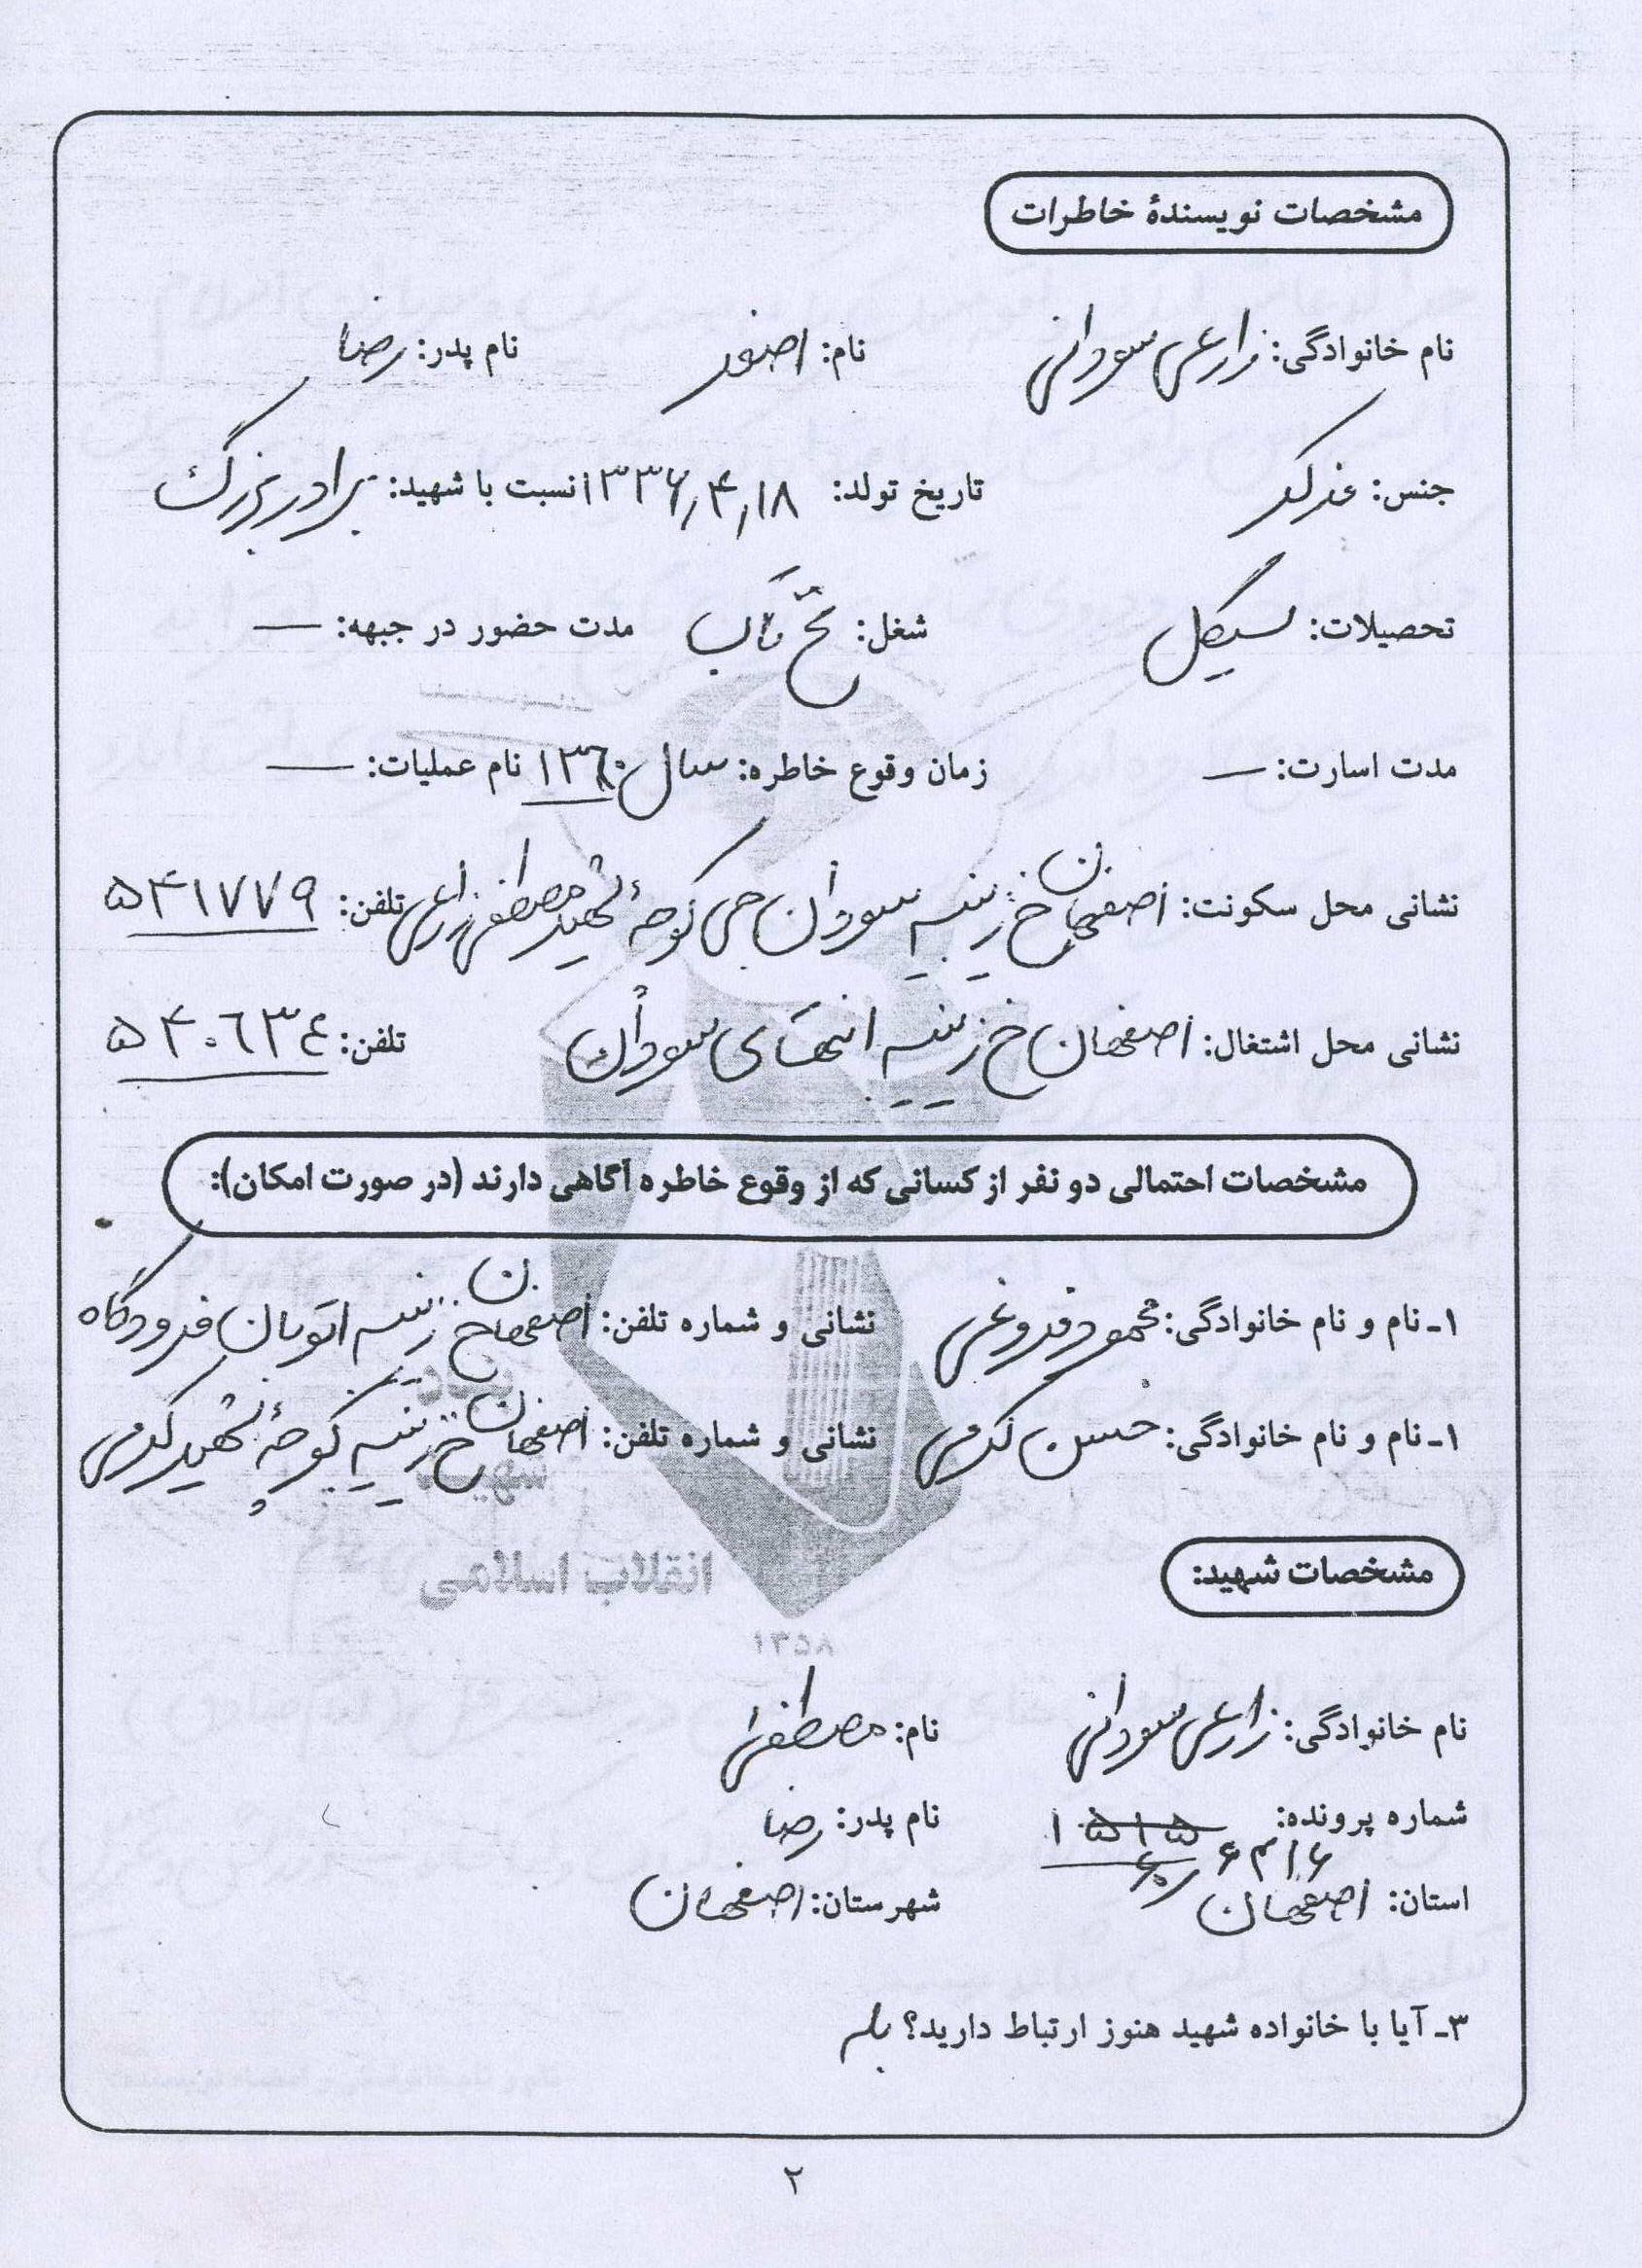 مشخصات نویسندهٔ خاطرات
نام خانوادگی: زارعی سودانی نام: اصغر نام پدر: رضا
جنس: مذکر تاریخ تولد: ۱۳۳۶٫۴٫۱۸ نسبت با شهید: برادر بزرگ
تحصیلات: سیکل شغل: نخ تاب مدت حضور در جبهه: —
مدت اسارت: — زمان وقوع خاطره: سال ۱۳۶۰ نام عملیات: —
نشانی محل سکونت: اصفهان خ زینبیه سودان جی کوچهٔ شهید مصطفی زارعی تلفن: ۵۴۱۷۷۹
نشانی محل اشتغال: اصفهان خ زینبیه انتهای سودان تلفن: ۵۴۰۶۳۴
مشخصات احتمالی دو نفر از کسانی که از وقوع خاطره آگاهی دارند (در صورت امکان):
۱ـ نام و نام خانوادگی: محمود فروغی نشانی و شماره تلفن: اصفهان خ زینبیه اتوبان فرودگاه
۱ـ نام و نام خانوادگی: حسن کرمی نشانی و شماره تلفن: اصفهان خ زینبیه کوچهٔ شهید کرمی
بنیاد
شهید
انقلاب اسلامی
۱۳۵۸
مشخصات شهید:
نام خانوادگی: زارعی سودانی نام: مصطفی
شماره پرونده: ۱۵۱۵ نام پدر: رضا
استان: اصفهان شهرستان: اصفهان
۳ـ آیا با خانواده شهید هنوز ارتباط دارید؟ بله
۲